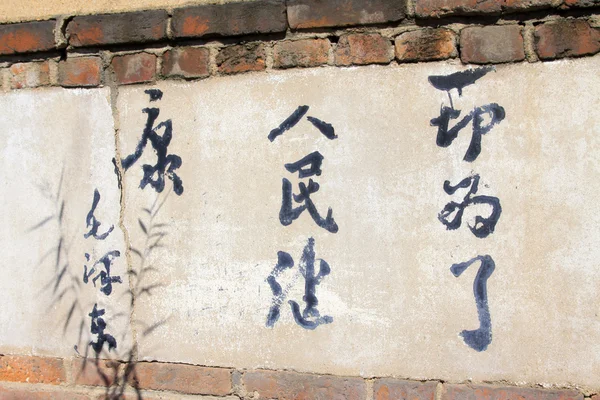 一切为了
人民健
康
毛泽东